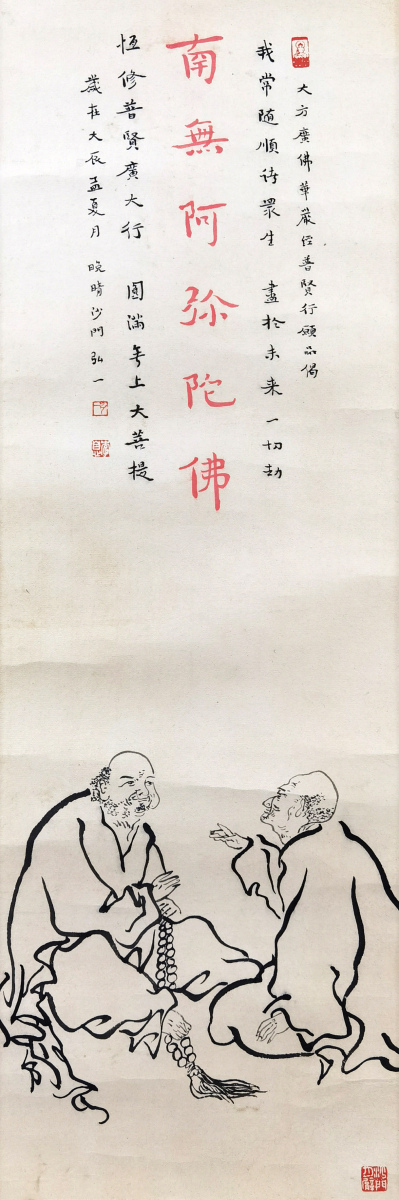 大方廣佛華嚴經普賢行願品偈
我常隨順諸眾生 盡於未來一切劫
南無阿彌陀佛
恆修普賢廣大行 圓滿無上大菩提
歲在大辰孟夏月 晚晴沙門弘一